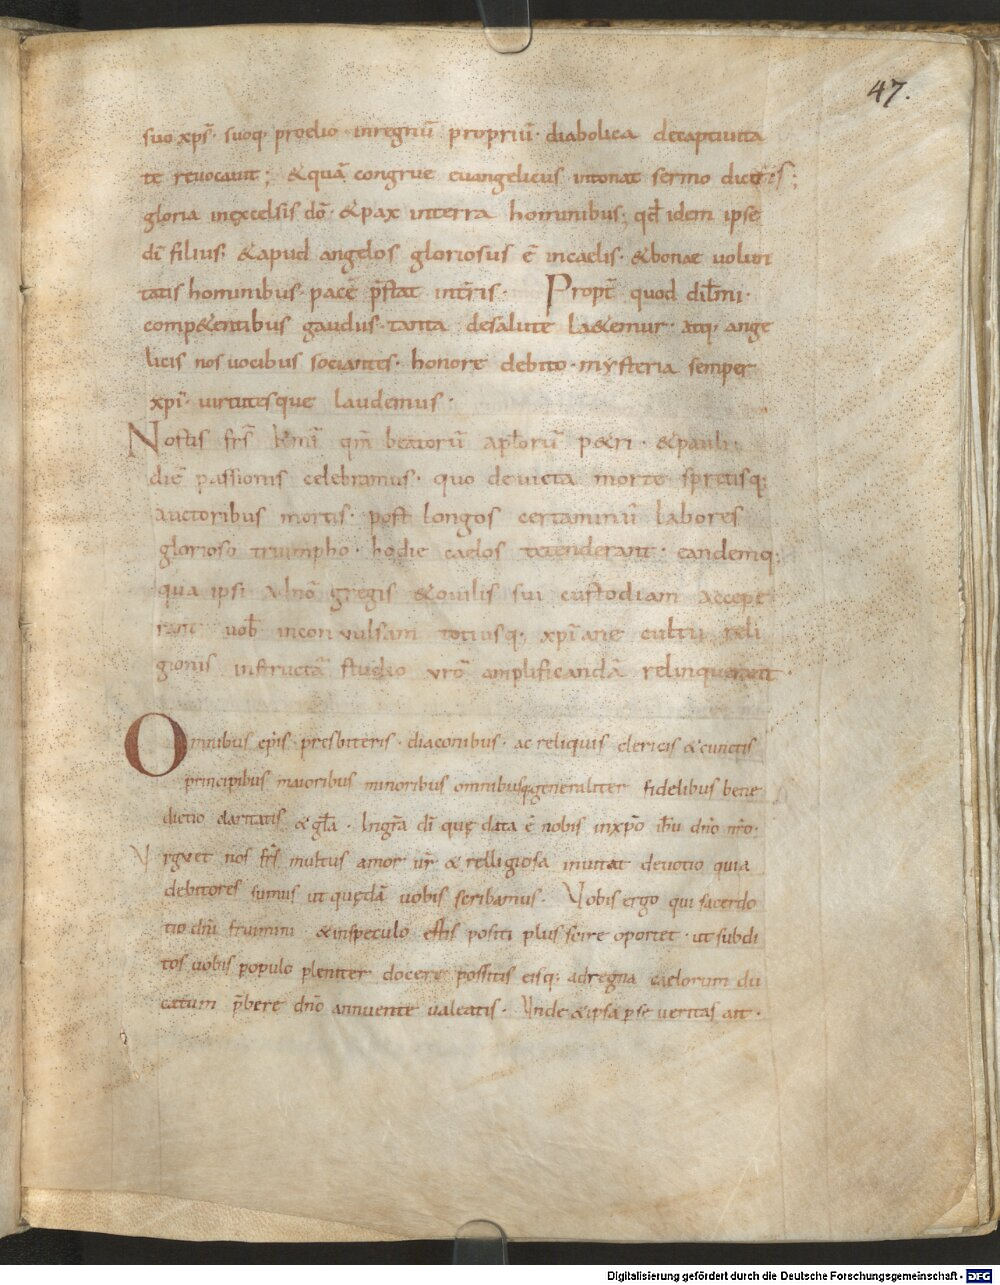 47.
suo xp̄s· suoq· proelio · inregnū propriū· diabolica decaptiuita
te reuocauit; &quā congrue euangelicus intonat sermo dicētis;
gloria inexcelsis dō· &pax interra hominibus; qd̄ idem ipse
dī filius· &apud angelos gloriosus ē incaelis· &bonae uolun
tatis hominibus· pacē p̄stat intēris· Propt̄ quod dil̄mi·
comp&entibus gaudiis· tanta desalute la&emur· atq· ange
licis nos uocibus sociantes· honore debito · mysteria semper
xpī· uirtutesque laudemus·
Nostis frs̄ km̄i qm̄ beatorū apl̄orū p&ri· &pauli·
diē passionis celebramus· quo deuicta morte spretisq;
auctoribus mortis· post longos certaminū labores
glorioso triumpho· hodie caelos tetenderant· eandemq;
qua ipsi adnō gregis &ouilis sui custodiam accepe
rant uob̄ inconvulsam totiusq; xpīane cultu reli
gionis instructā studio vrō amplificandā relinquerant·
Omnibus ep̄is· presbiteris· diaconibus· ac reliquis clericis &cunctis
principibus maioribus minoribus omnibusq·generaliter fidelibus bene
dictio claritatis & gl̄a· Ingr̄a dī quę data ē nobis inxpō ih̄u dn̄o nr̄o·
Vrguet nos frs̄ multus amor ur̄ & relligiosa inuitat deuotio quia
debitores sumus ut quędā uobis scribamus· Vobis ergo qui sacerdo
tio dn̄i fruimini &inspeculo estis positi plus scire oportet· ut subdi
tos uobis populo pleniter docere possitis eisq; adregna caelorum du
catum p̄bere dn̄o annuente ualeatis· Unde &ipsa p se ueritas ait·
Digitalisierung gefördert durch die Deutsche Forschungsgemeinschaft - DFG